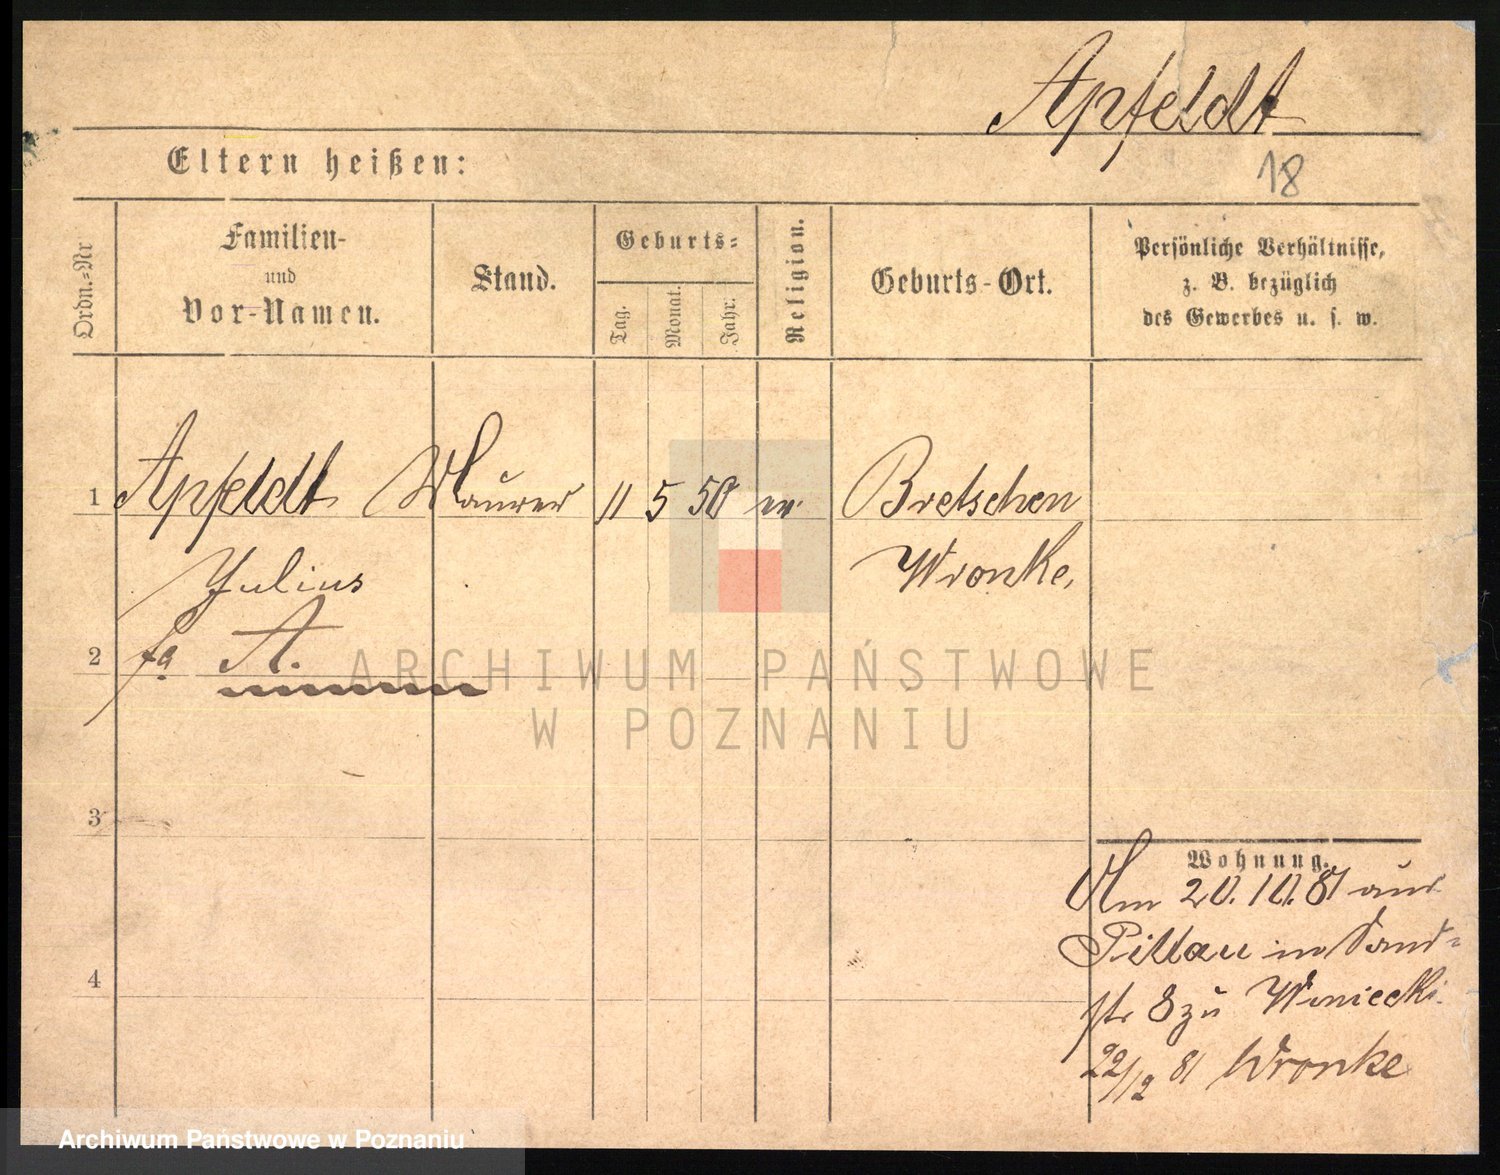 Apfeldt
18
Eltern heißen:
Ordn.=Nr
Familien-
und
Vor-Namen.
Stand.
Geburts=
Tag.
Monat.
Jahr.
Religion.
Geburts-Ort.
Persönliche Verhältnisse,
z. B. bezüglich
des Gewerbes u. s. w.
1 Apfeldt Maurer 11 5 50 ev Bretschen
Julius Wronke,
2 A.
ARCHIWUM PAŃSTWOWE
W POZNANIU
3
4
Wohnung.
Am 20.10.81 aus
Pillau in Sand=
str 8 zu
22/12 81 Wronke
Archiwum Państwowe w Poznaniu